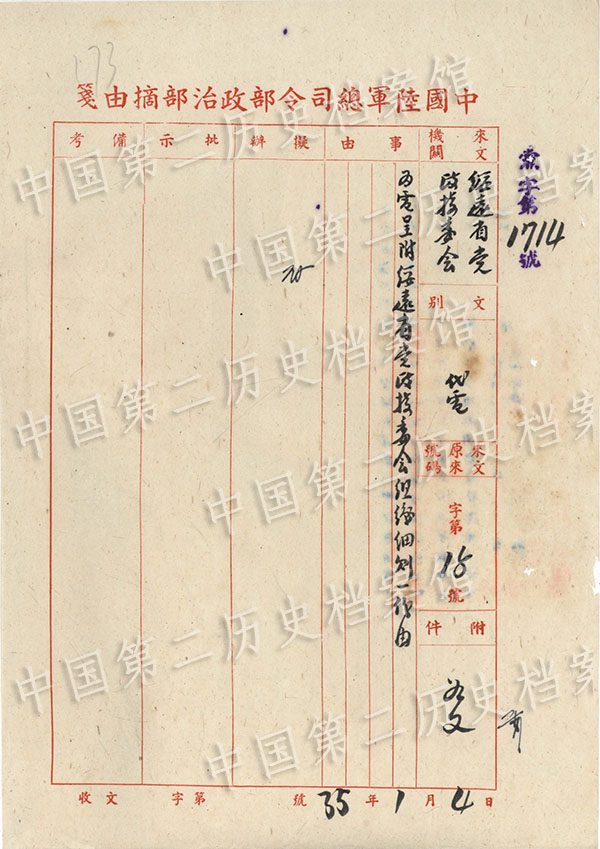 173
中國陸軍總司令部政治部摘由箋
字第1714號
來文機關
綏遠省党政接委会
文別
代電
來文原來號碼
字第15號
附件
如文
事由
綏遠省党政接委会組織細則一份由
擬辦
存
批示
備考
收文 字第 號 35年1月4日
中国第二历史档案馆
中国第二历史档案馆
中国第二历史档案馆
中国第二历史档案馆
中国第二历史档案馆
中国第二历史档案馆